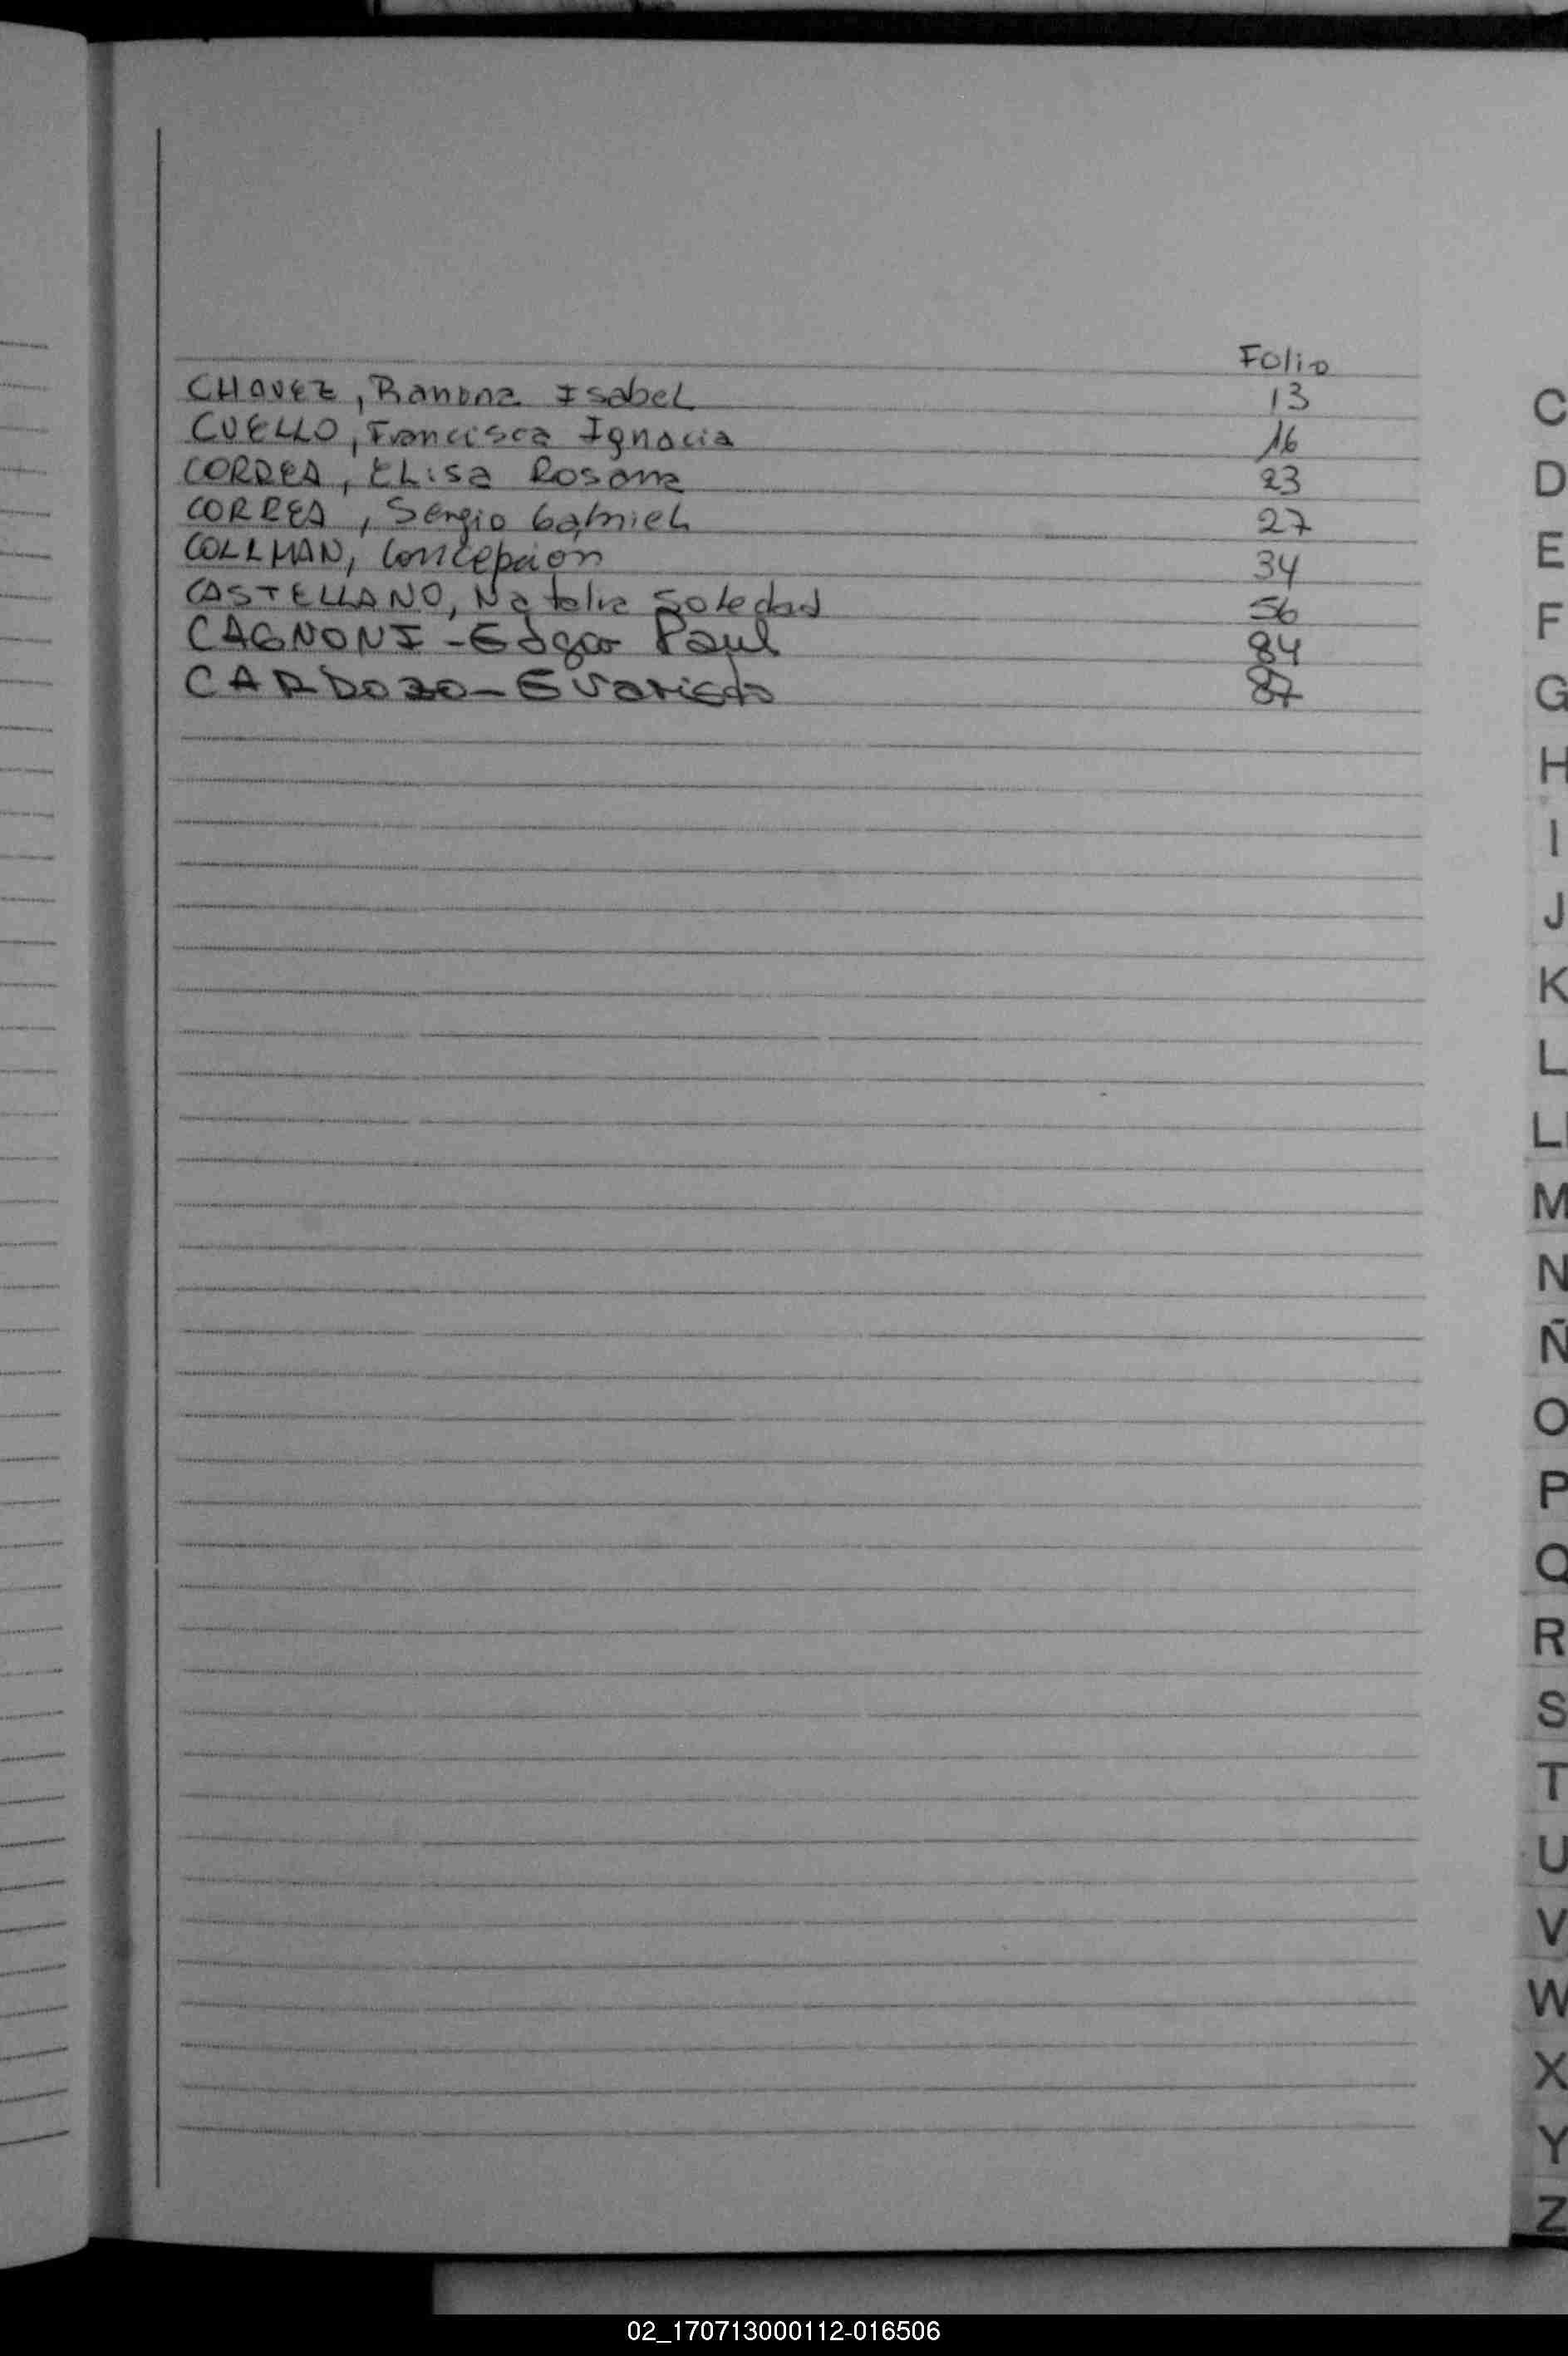 Folio
CHAVEZ, Ramona Isabel 13
CUELLO, Francisca Ignacia 16
CORREA, Elisa Rosana 23
CORREA, Sergio Gabriel 27
COLLMAN, Concepcion 34
CASTELLANO, Natalia Soledad 56
CAGNONI - Edgar Paul 84
CARDOZO - Evaristo 87
C
D
E
F
G
H
I
J
K
L
LL
M
N
Ñ
O
P
Q
R
S
T
U
V
W
X
Y
Z
02_170713000112-016506